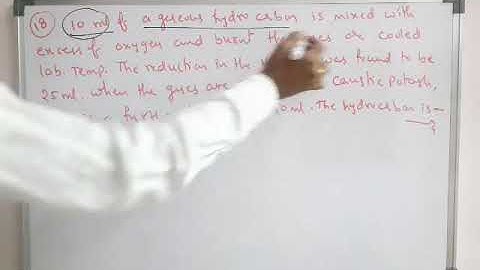 18 10 ml of a gaseous hydro carbon is mixed with
excess of oxygen and burnt the are cooled
lab. Temp. The reduction in the was found to be
25ml. when the gases are caustic potash,
a furt 0ml. The hydrocarbon is-